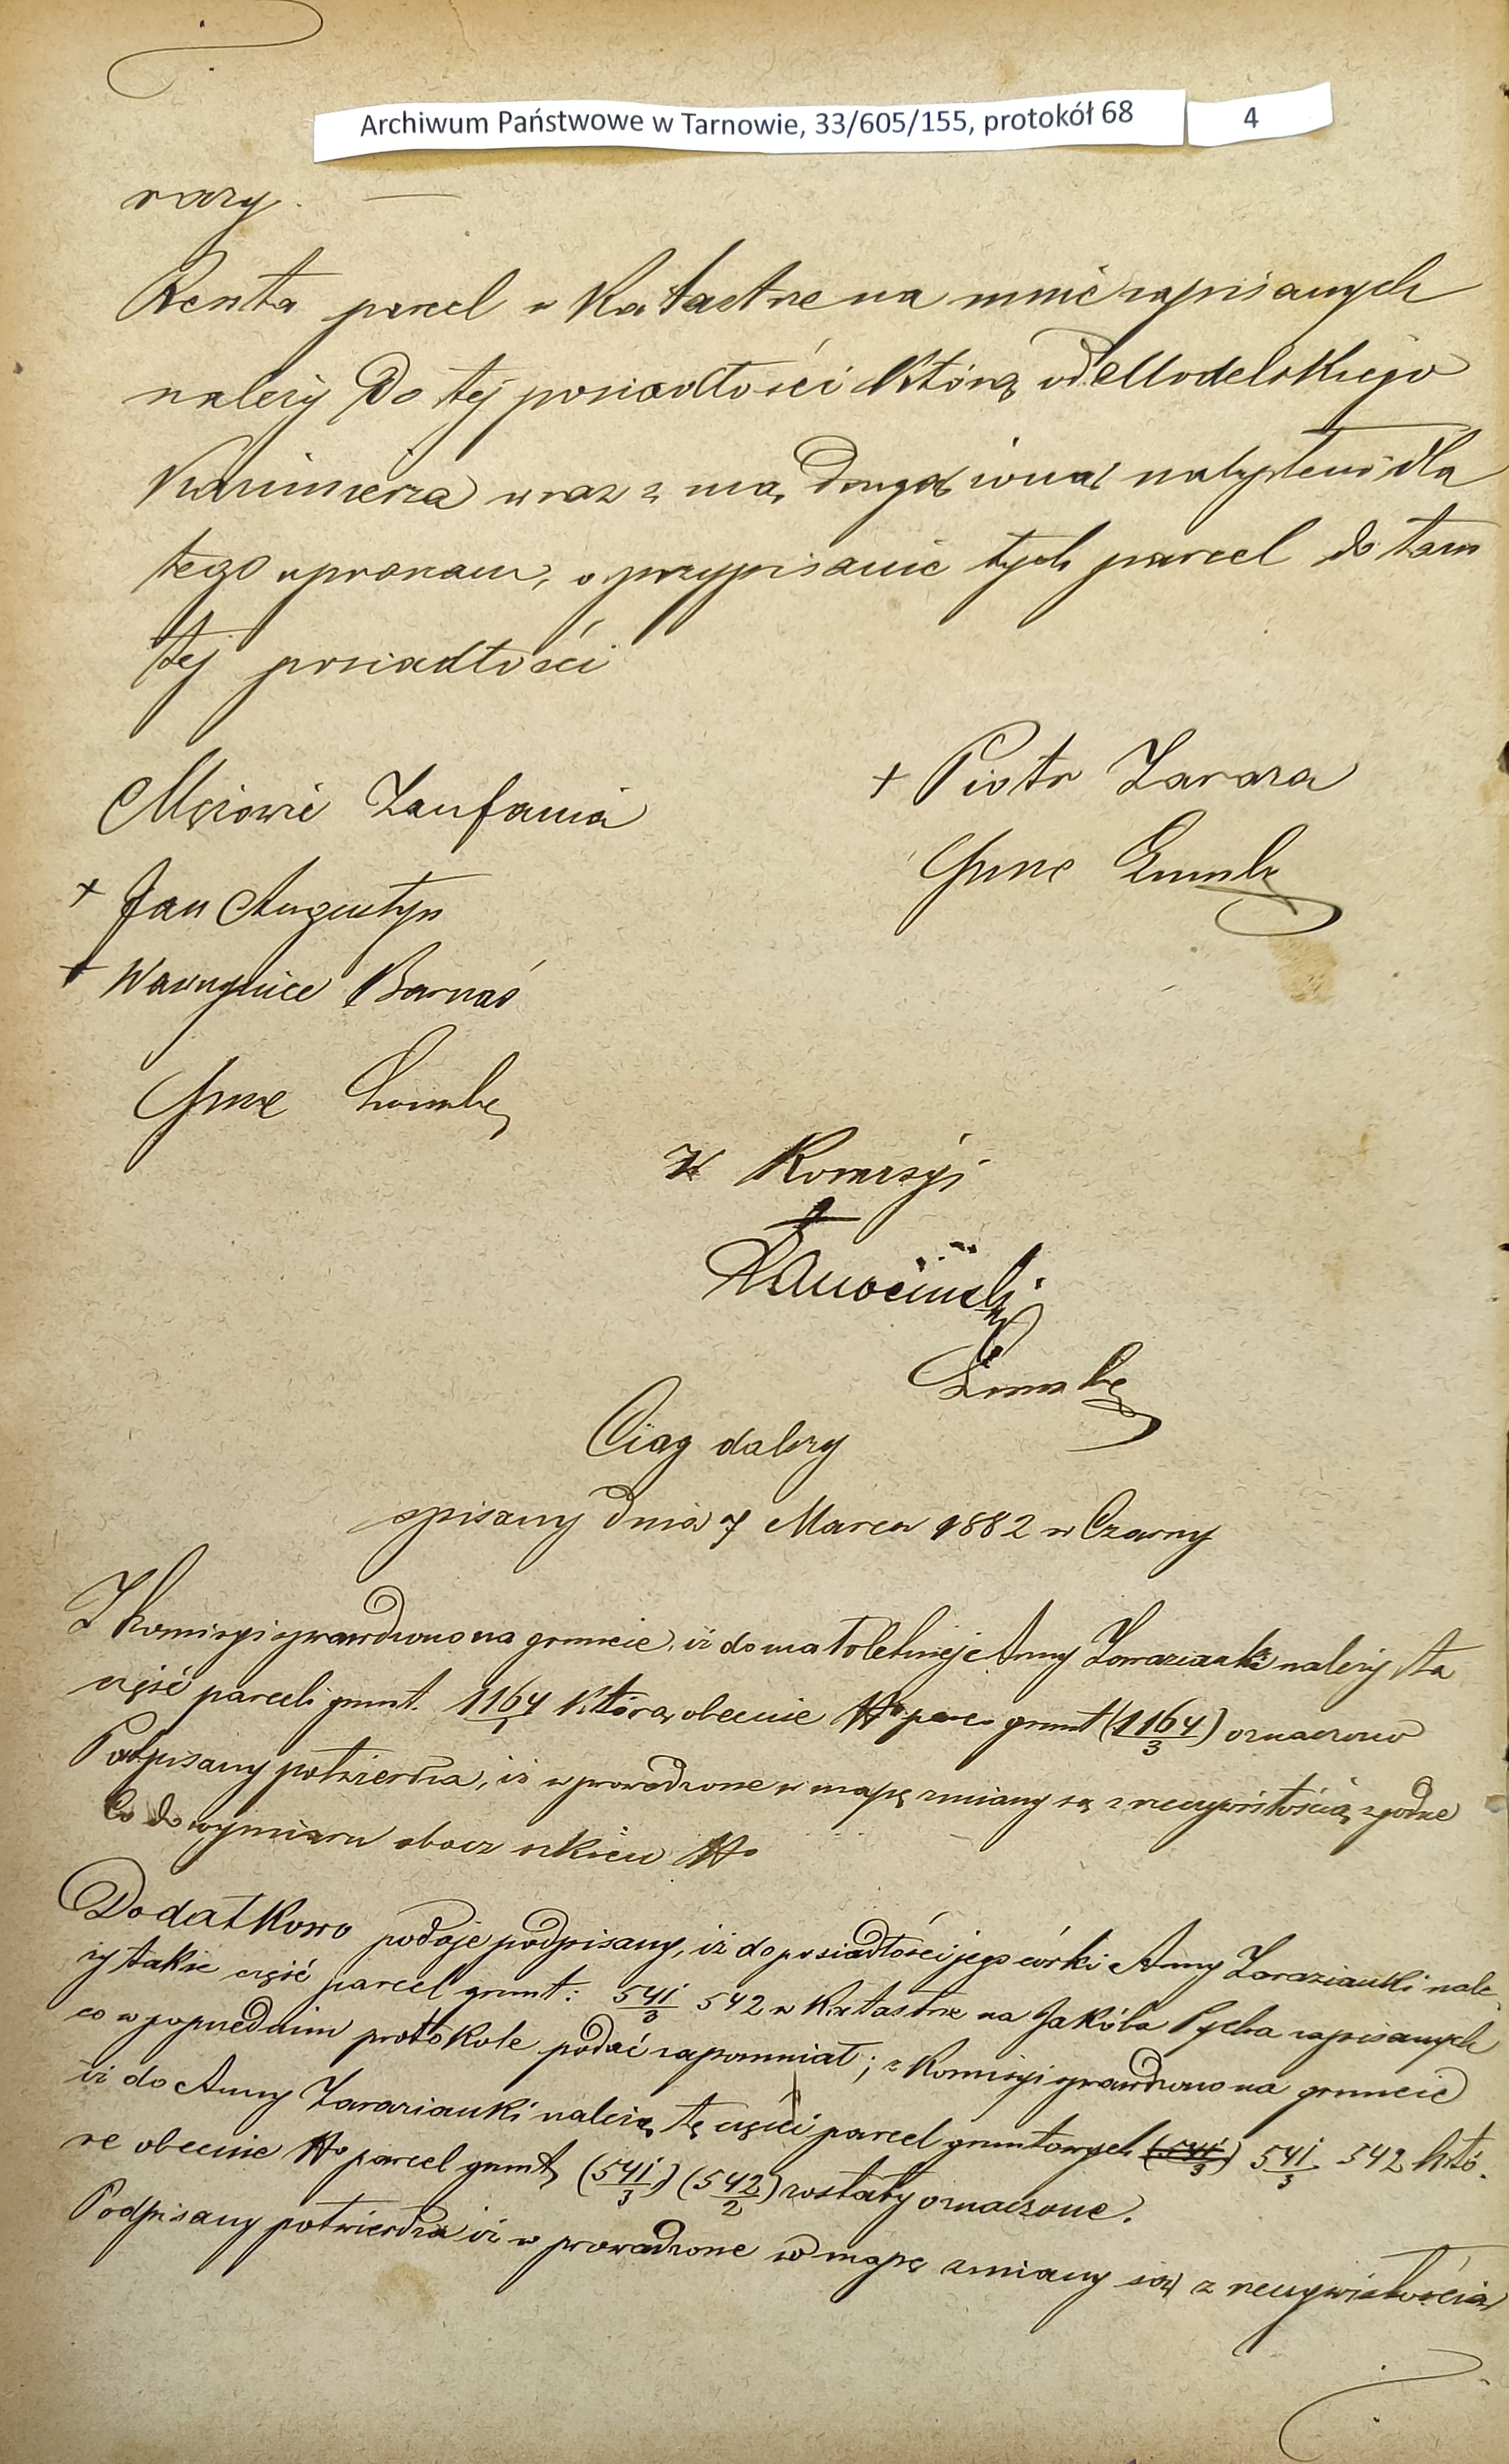 Archiwum Państwowe w Tarnowie, 33/605/155, protokół 68 4
razy. —
Reszta parcel w Katastrze na mnie zapisanych
należy do tej posiadłości którą od Modelskiego
Kazimierza wraz z mą drugą żoną nabyłem dla
tego upraszam, o przypisanie tych parcel do tam
tej posiadłości
Mężowie Zaufania
+ Piotr Zaraza
+ Jan Augustyn
+ Wawrzyniec Barnaś
Z Komisyi
Ciąg dalszy
spisany dnia 7 Marca 1882 w Czarny
Z komisyi sprawdzono na gruncie, iż do małoletniej Anny Zarazianki należy ta
część parceli grunt. 1164/1 którą obecnie No parc. grunt (1164/3) oznaczono
Podpisany potwierdza, iż wprowadzone w mapę zmiany są z rzeczywistością zgodne
Co do wymiaru obacz szkicu No
Dodatkowo podaje podpisany, iż do posiadłości jego córki Anny Zarazianki nale
ży także część parcel grunt: 541/3 542 w Katastrze na Jakóba Pycha zapisanych
co w poprzednim protokole podać zapomniał; z Komisyi sprawdzono na gruncie
iż do Anny Zarazianki należą tę części parcel gruntowych 541/3 542 któ
re obecnie No parcel grunt, (541/3) (542/2) zostały oznaczone.
Podpisany potwierdza iż wprowadzone w mapę zmiany są z rzeczywistością